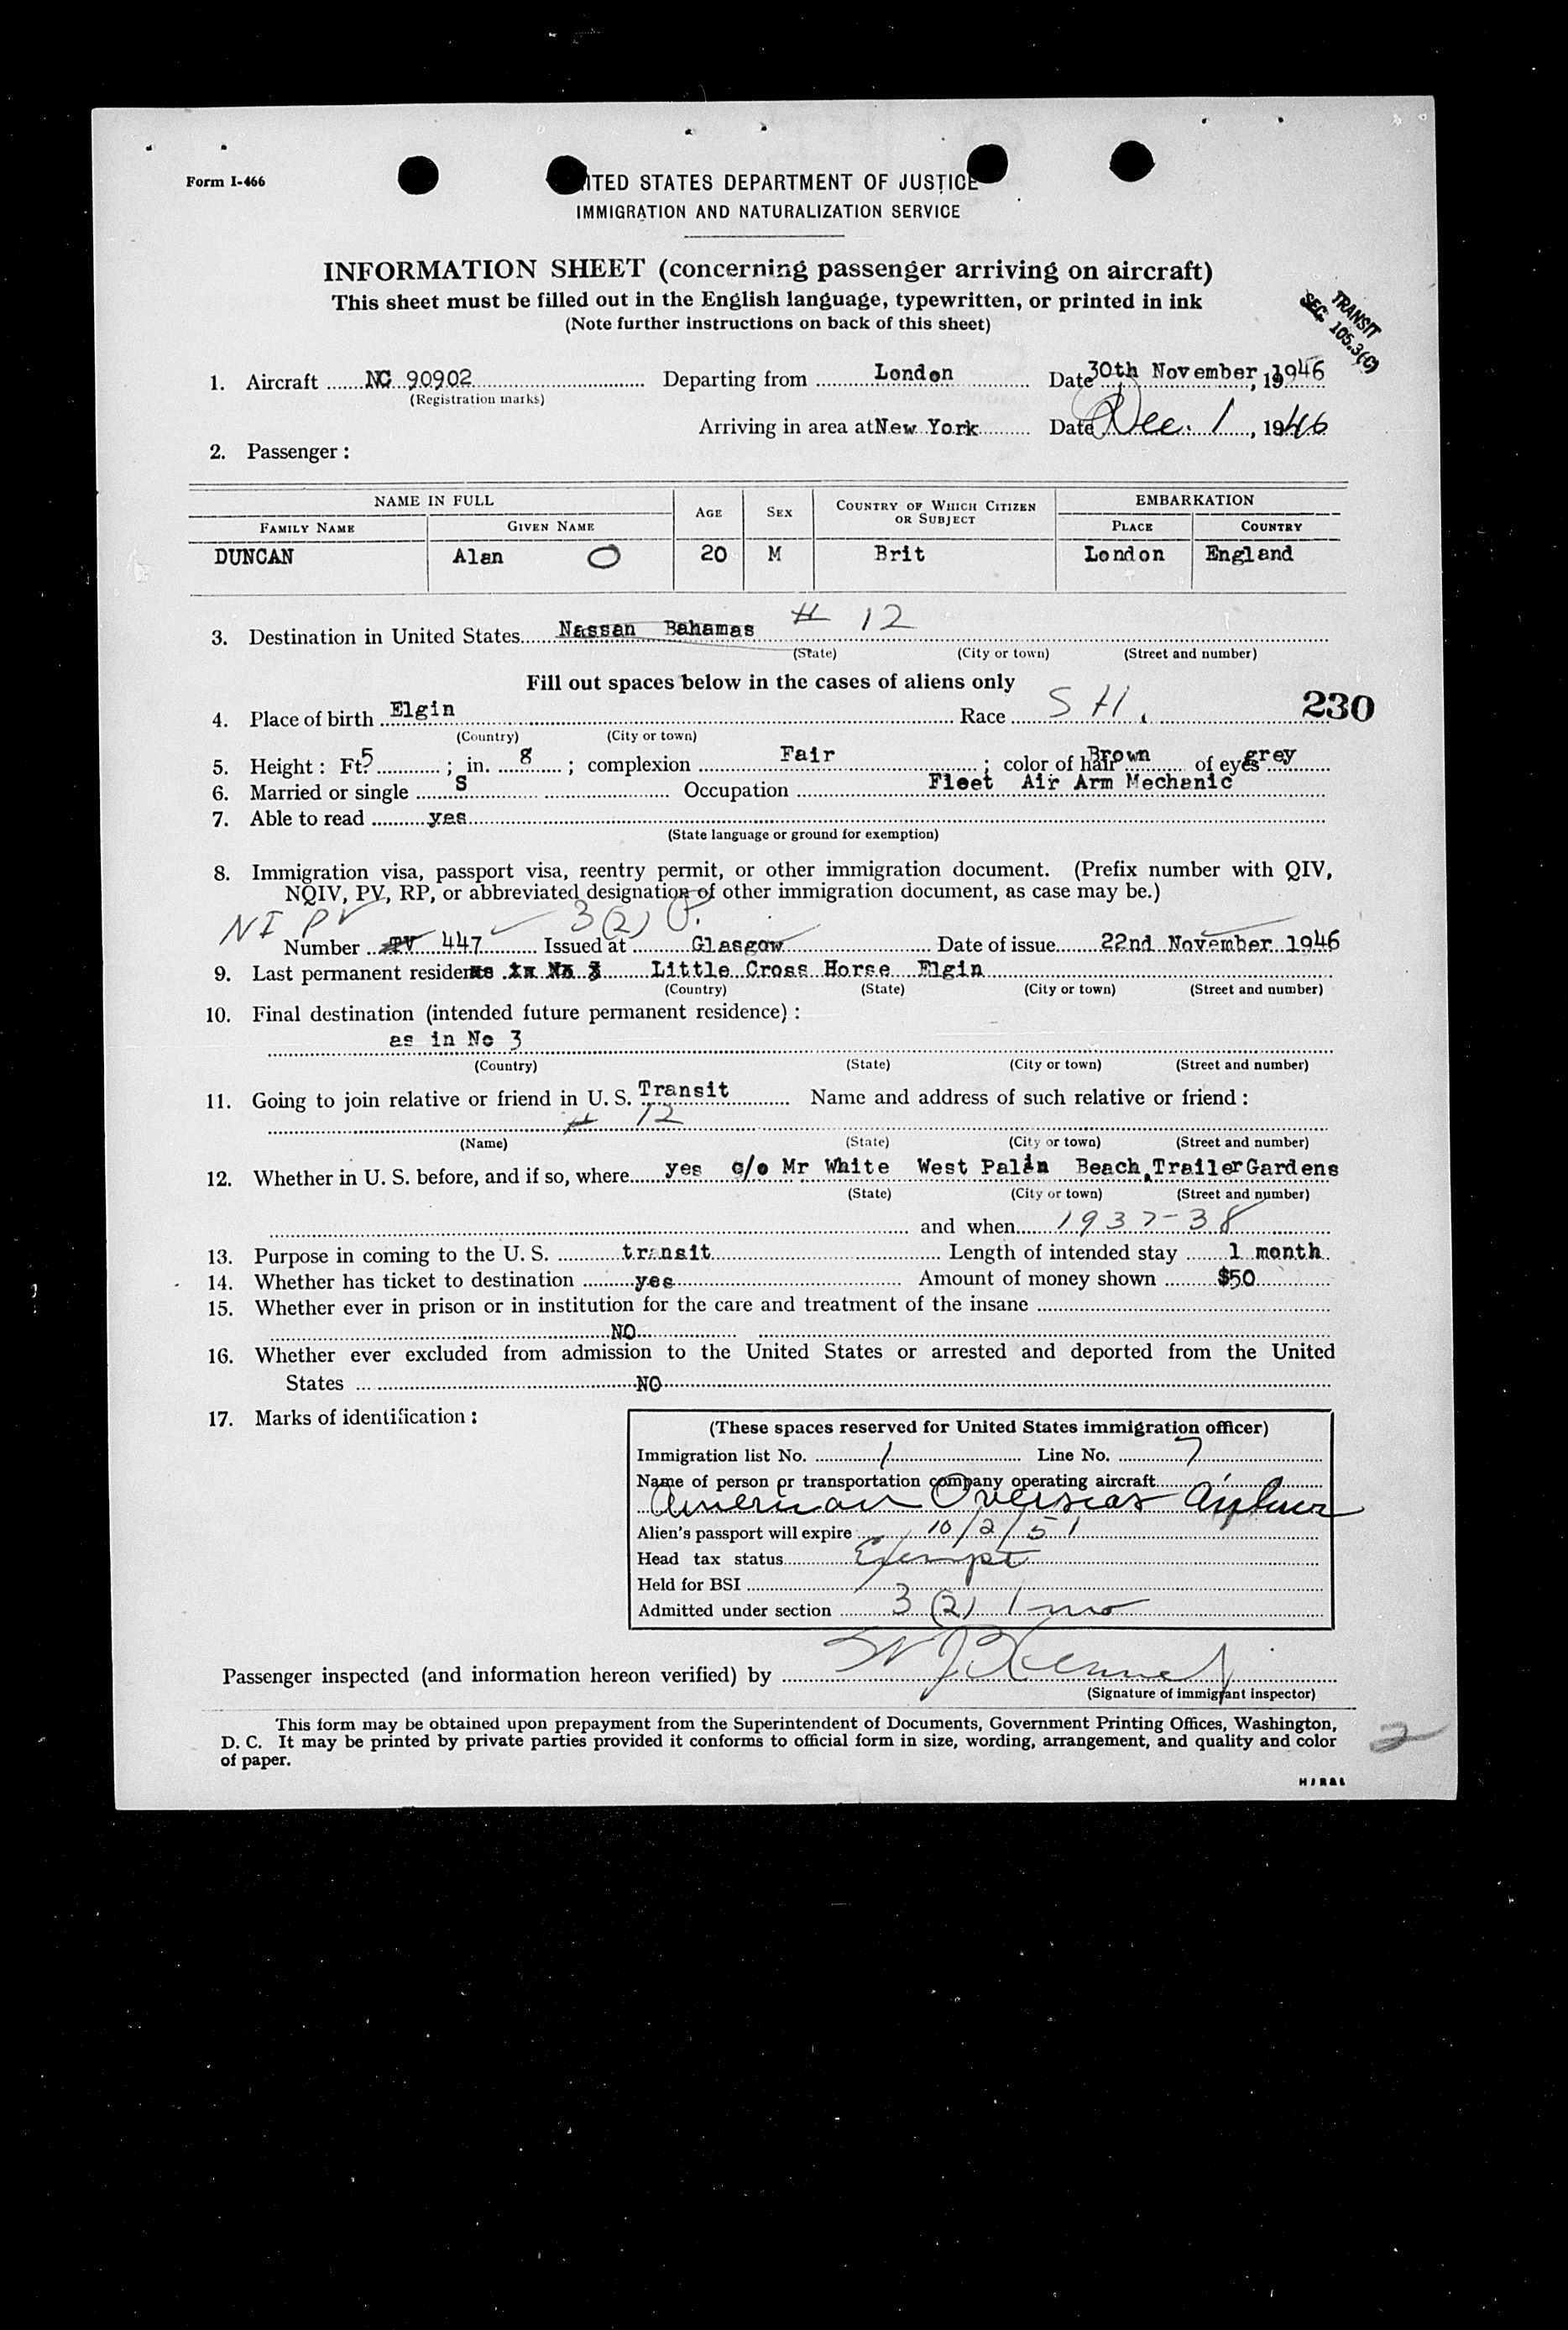 Form I-466
UNITED STATES DEPARTMENT OF JUSTICE
IMMIGRATION AND NATURALIZATION SERVICE
INFORMATION SHEET (concerning passenger arriving on aircraft)
This sheet must be filled out in the English language, typewritten, or printed in ink
(Note further instructions on back of this sheet)
TRANSIT
SEC. 105.3(C)
1. Aircraft NC 90902 Departing from London Date 30th November, 1946
(Registration marks)
Arriving in area at New York Date Dec. 1, 1946
2. Passenger:
NAME IN FULL AGE SEX COUNTRY OF WHICH CITIZEN OR SUBJECT EMBARKATION
FAMILY NAME GIVEN NAME PLACE COUNTRY
DUNCAN Alan O 20 M Brit London England
3. Destination in United States Nassan Bahamas # 12
(State) (City or town) (Street and number)
Fill out spaces below in the cases of aliens only
4. Place of birth Elgin Race S H. 230
(Country) (City or town)
5. Height: Ft. 5; in. 8; complexion Fair; color of hair Brown of eyes grey
6. Married or single S Occupation Fleet Air Arm Mechanic
7. Able to read yes
(State language or ground for exemption)
8. Immigration visa, passport visa, reentry permit, or other immigration document. (Prefix number with QIV,
NQIV, PV, RP, or abbreviated designation of other immigration document, as case may be.)
NI PV 3(2)
Number PV 447 Issued at Glasgow Date of issue 22nd November 1946
9. Last permanent residence Little Cross Horse Elgin
(Country) (State) (City or town) (Street and number)
10. Final destination (intended future permanent residence):
as in No 3
(Country) (State) (City or town) (Street and number)
11. Going to join relative or friend in U. S. Transit Name and address of such relative or friend:
# 12
(Name) (State) (City or town) (Street and number)
12. Whether in U. S. before, and if so, where yes c/o Mr White West Palm Beach, Trailer Gardens
(State) (City or town) (Street and number)
and when 1937-38
13. Purpose in coming to the U. S. transit Length of intended stay 1 month
14. Whether has ticket to destination yes Amount of money shown $50
15. Whether ever in prison or in institution for the care and treatment of the insane
NO
16. Whether ever excluded from admission to the United States or arrested and deported from the United
States NO
17. Marks of identification:
(These spaces reserved for United States immigration officer)
Immigration list No. 1 Line No. 7
Name of person or transportation company operating aircraft
American Overseas Airlines
Alien's passport will expire 10/2/51
Head tax status Exempt
Held for BSI
Admitted under section 3(2) 1 mo
Passenger inspected (and information hereon verified) by
(Signature of immigrant inspector)
This form may be obtained upon prepayment from the Superintendent of Documents, Government Printing Offices, Washington,
D. C. It may be printed by private parties provided it conforms to official form in size, wording, arrangement, and quality and color
of paper.
2